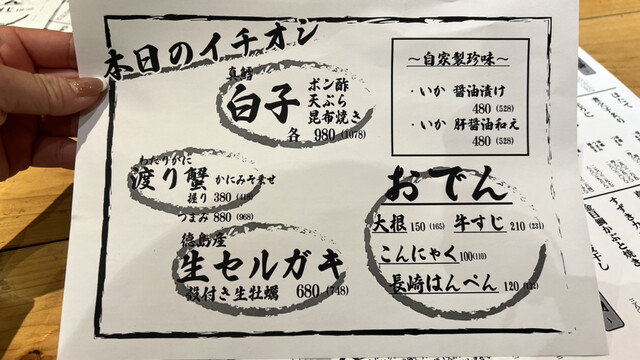 本日のイチオシ
真鱈
白子
ポン酢
天ぷら
昆布焼き
各 980 (1078)
わたりがに
渡り蟹 かにみそ乗せ
握り 380 (418)
つまみ 880 (968)
徳島産
生セルガキ
殻付き生牡蠣 680 (748)
～自家製珍味～
・いか 醤油漬け
480 (528)
・いか 肝醤油和え
480 (528)
おでん
大根 150 (165) 牛すじ 210 (231)
こんにゃく 100 (110)
長崎はんぺん 120 (132)